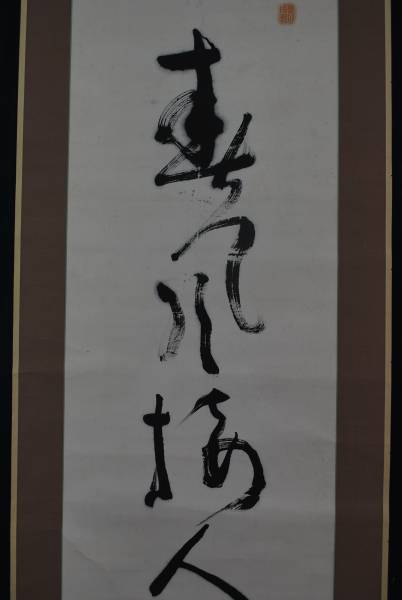 春風接人